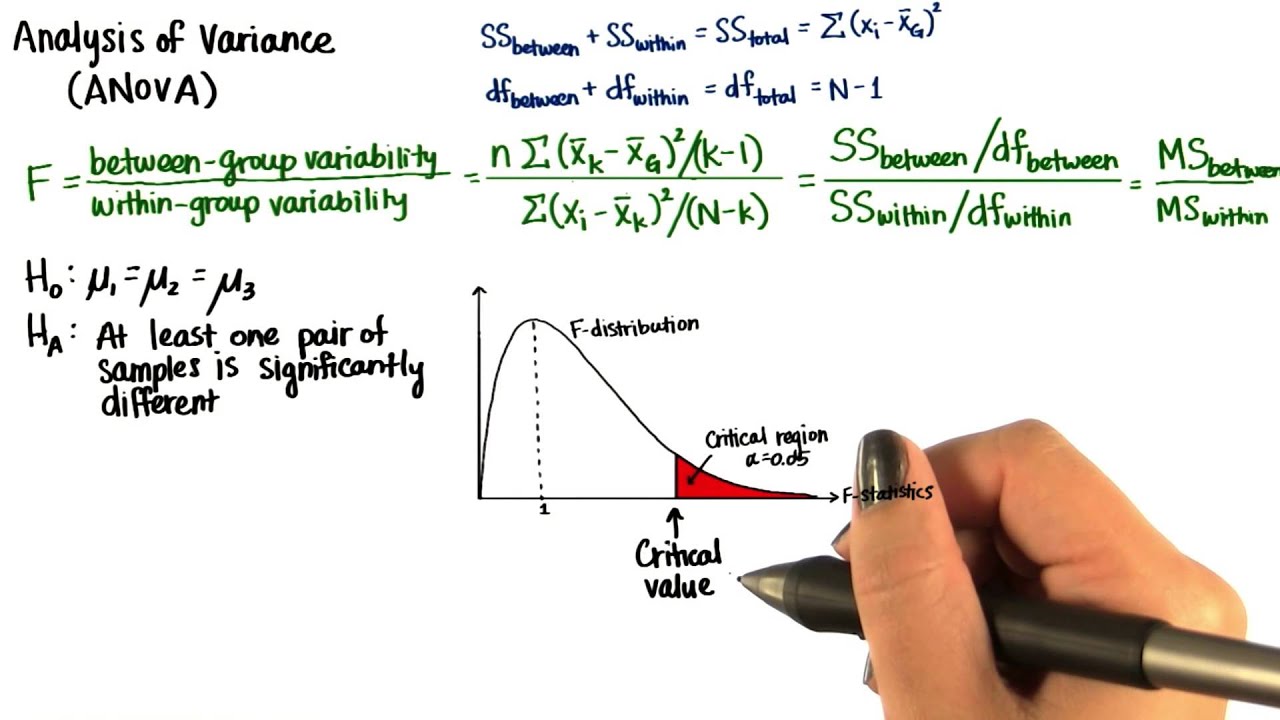 Analysis of Variance
(ANOVA)
SSbetween + SSwithin = SStotal = Σ(xi - x̄G)²
dfbetween + dfwithin = dftotal = N-1
F = between-group variability / within-group variability = n Σ(x̄k - x̄G)²/(k-1) / Σ(xi - x̄k)²/(N-k) = SSbetween/dfbetween / SSwithin/dfwithin = MSbetween / MSwithin
H0: μ1 = μ2 = μ3
HA: At least one pair of
samples is significantly
different
F-distribution
Critical region
α=0.05
F-statistics
1
Critical
value